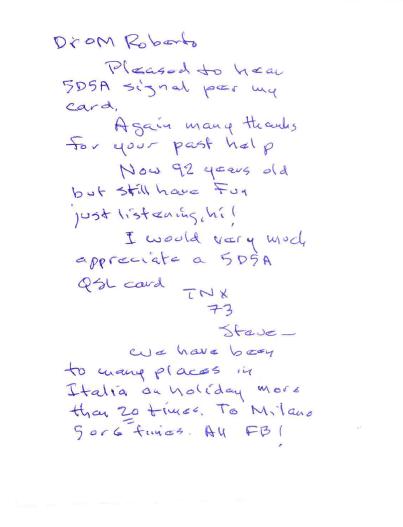 Dr OM Roberto
Pleased to hear
5D5A signal per my
card.
Again many thanks
for your past help
Now 92 years old
but still have Fun
just listening, hi!
I would very much
appreciate a 5D5A
QSL card
TNX
73
Steve—
We have been
to many places in
Italia on holiday more
than 20 times. To Milano
5 or 6 times. All FB!